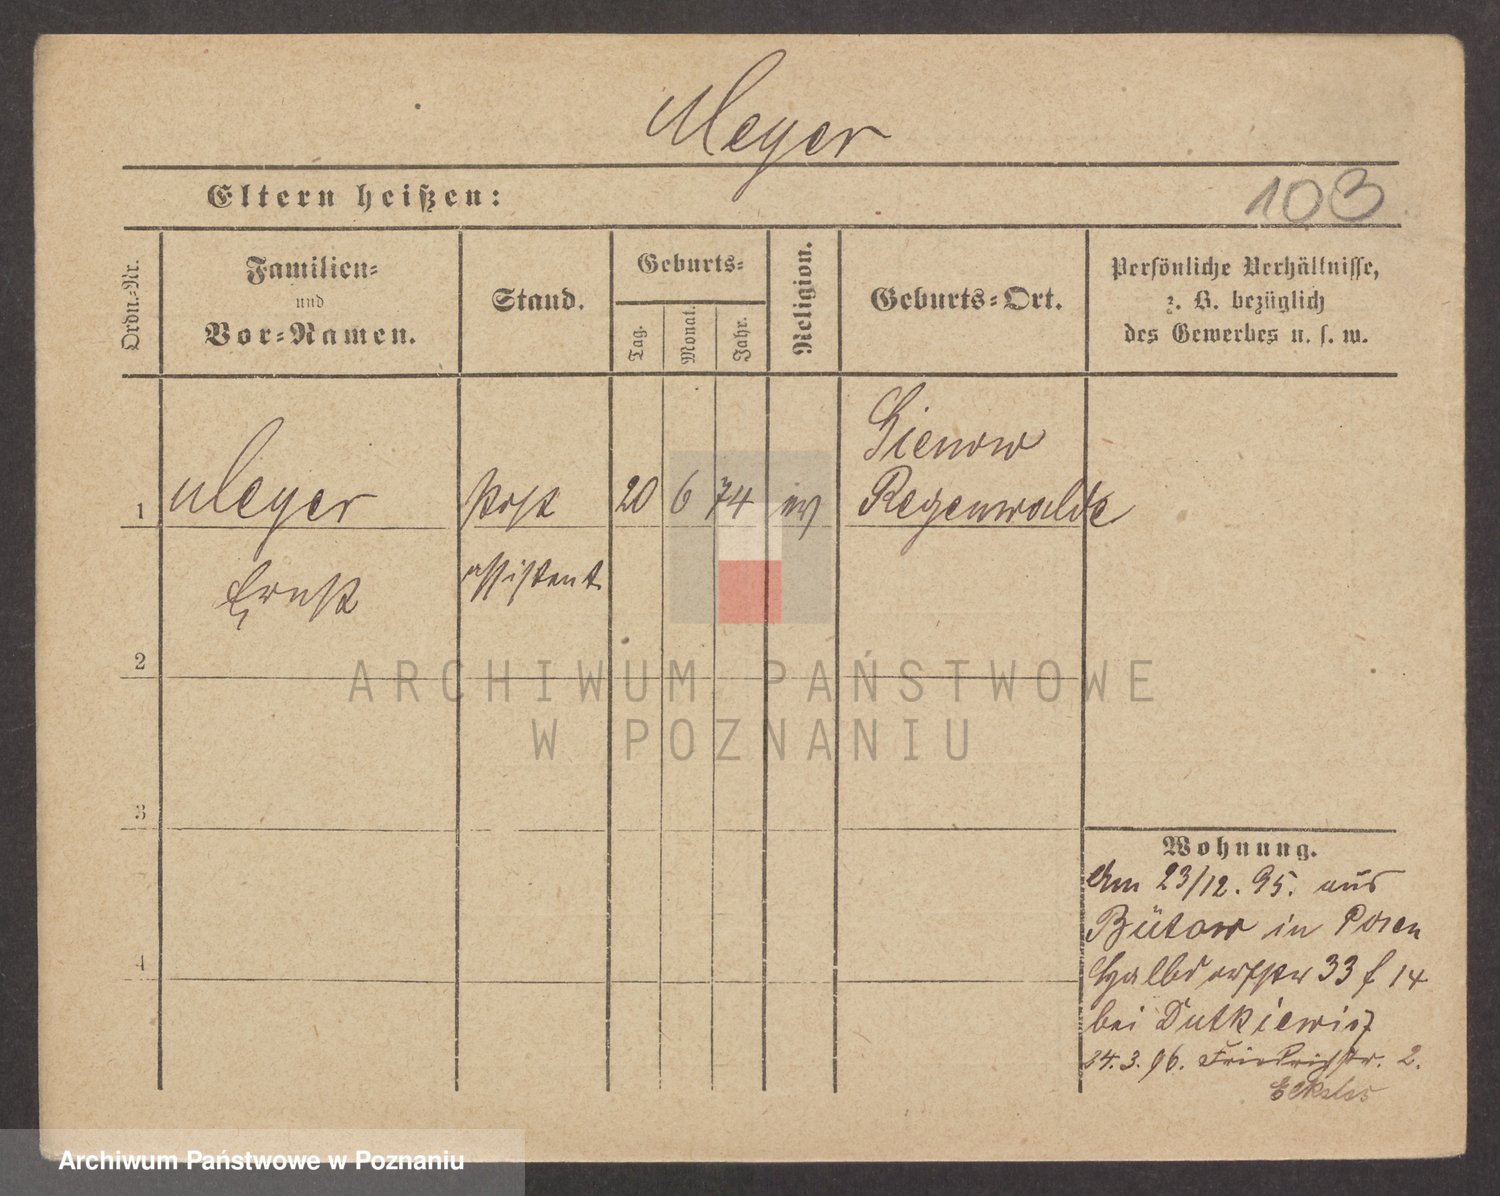 Meyer
Eltern heißen:
103
Ordn.-Nr.
Familien-
und
Vor-Namen.
Stand.
Geburts-
Tag.
Monat.
Jahr.
Religion.
Geburts-Ort.
Persönliche Verhältnisse,
z. B. bezüglich
des Gewerbes u. s. w.
1
Meyer
Ernst
Post
assistent
20
6
74
ev
Sienow
Regenwalde
2
3
4
Wohnung.
Am 23/12. 95. aus
Bütow in Posen
Halbdorfstr 33 f 14
bei Dutkiewicz
24.3.96. Friedrichstr. 2.
ARCHIWUM PAŃSTWOWE
W POZNANIU
Archiwum Państwowe w Poznaniu